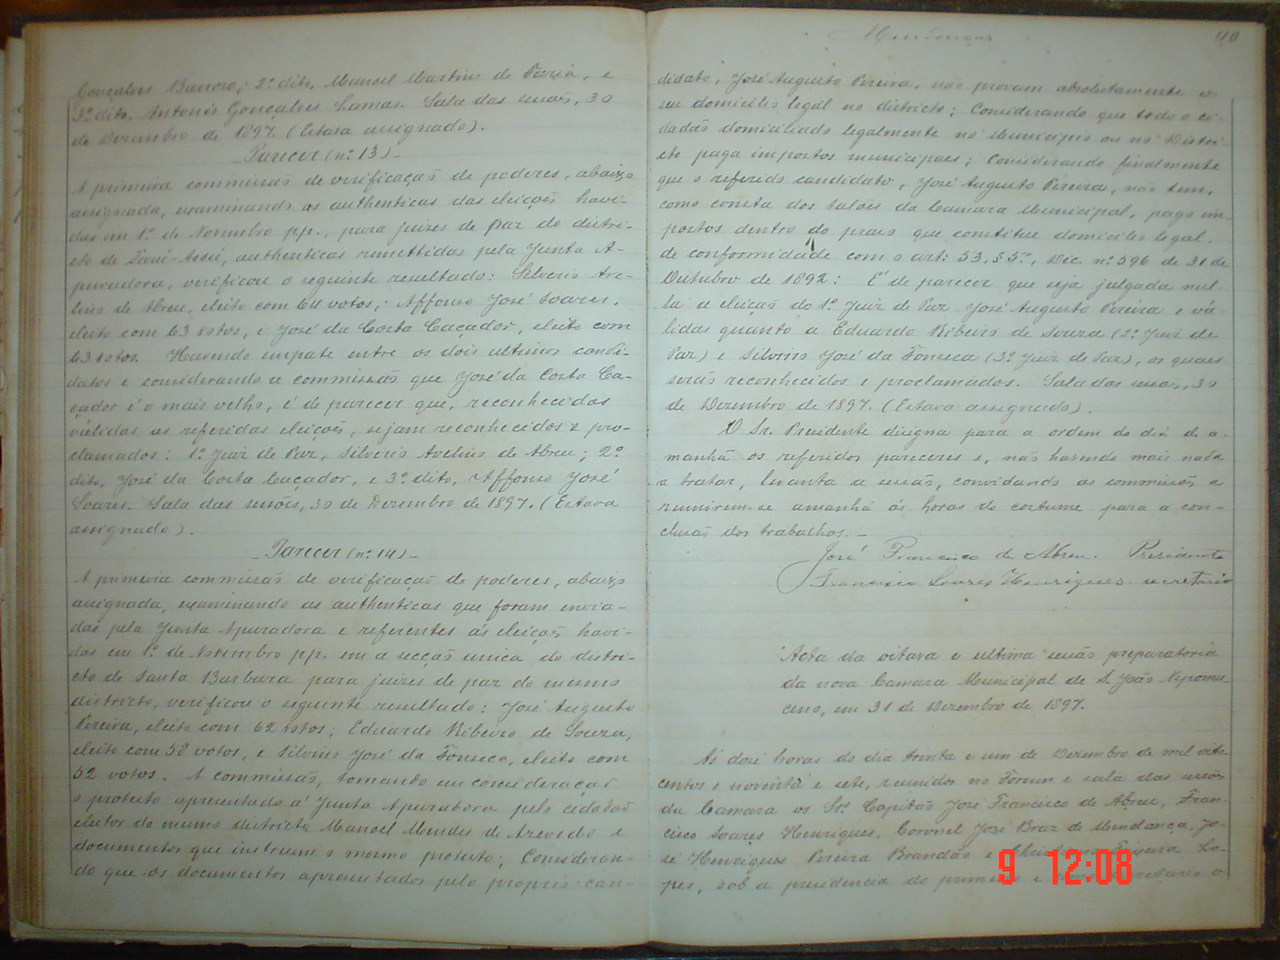 Gonçalves Barroso; 2º dito, Manoel Martins de Faria, e
3º dito, Antonio Gonçalves Lamas. Sala das sessões, 30
de Dezembro de 1897. (Estava assignado).
Parecer (nº 13)
A primeira commissão de verificação de poderes, abaixo
assignada, examinando as authenticas das eleições havi-
das em 1º de Novembro pp., para juizes de paz do distri-
cto de Assú, authenticas remettidas pela Junta A-
puradora, verificou o seguinte resultado: Silverio Ave-
lino de Abreu, eleito com 64 votos; Affonso José Soares,
eleito com 63 votos, e José da Costa Caçador, eleito com
63 votos. Havendo empate entre os dois ultimos candi-
datos e considerando a commissão que José da Costa Ca-
çador é o mais velho, é de parecer que, reconhecidas
válidas as referidas eleições, sejam reconhecidos e pro-
clamados: 1º Juiz de Paz, Silverio Avelino de Abreu; 2º
dito, José da Costa Caçador, e 3º dito, Affonso José
Soares. Sala das sessões, 30 de Dezembro de 1897. (Estava
assignado).
Parecer (nº 14)
A primeira commissão de verificação de poderes, abaixo
assignada, examinando as authenticas que foram envia-
das pela Junta Apuradora e referentes ás eleições havi-
das em 1º de Novembro pp. em a secção unica do distri-
cto de Santa Barbara para juizes de paz do mesmo
districto, verificou o seguinte resultado: José Augusto
Pereira, eleito com 62 votos; Eduardo Ribeiro de Souza,
eleito com 52 votos, e Silverio José da Fonseca, eleito com
52 votos. A commissão, tomando em consideração
o protesto apresentado á Junta Apuradora pelo cidadão
eleitor do mesmo districto Manoel Mendes de Azevedo e
documentos que instruem o mesmo protesto; Consideran-
do que os documentos apresentados pelo proprio can-
Mendonças
40
didato, José Augusto Pereira, não provam absolutamente o
seu domicilio legal no districto; Considerando que todo o ci-
dadão domiciliado legalmente no Municipio ou no Distri-
cto paga impostos municipaes; Considerando finalmente
que o referido candidato, José Augusto Pereira, não tem,
como consta dos talões da Camara Municipal, pago im-
postos dentro do praso que constitue domicilio legal,
de conformidade com o art: 53, § 5º, Dec. nº 596 de 31 de
Outubro de 1892: É de parecer que seja julgada nul-
la a eleição do 1º Juiz de Paz José Augusto Pereira e vá-
lidas quanto a Eduardo Ribeiro de Souza (2º Juiz de
Paz) e Silverio José da Fonseca (3º Juiz de Paz), os quaes
serão reconhecidos e proclamados. Sala das sessões, 30
de Dezembro de 1897. (Estava assignado).
O Sr. Presidente designa para a ordem do dia de a-
manhã os referidos pareceres e, não havendo mais nada
a tratar, levanta a sessão, convidando as commissões a
reunirem-se amanhã ás horas do costume para a con-
clusão dos trabalhos.
José Francisco de Abreu. Presidente
Francisco Soares Henriques. secretario
Acta da oitava e ultima sessão preparatoria
da nova Camara Municipal de S. João Nepomu-
ceno, em 31 de Dezembro de 1897.
Ás doze horas do dia trinta e um de Dezembro de mil oito
centos e noventa e sete, reunidos no Forum e sala das sessões
da Camara os Srs. Capitão José Francisco de Abreu, Fran-
cisco Soares Henriques, Coronel José Braz de Mendonça, Jo-
sé Henriques Pereira Brandão e Teixeira Lo-
pes, sob a presidencia do primeiro e secretario o
9 12:08